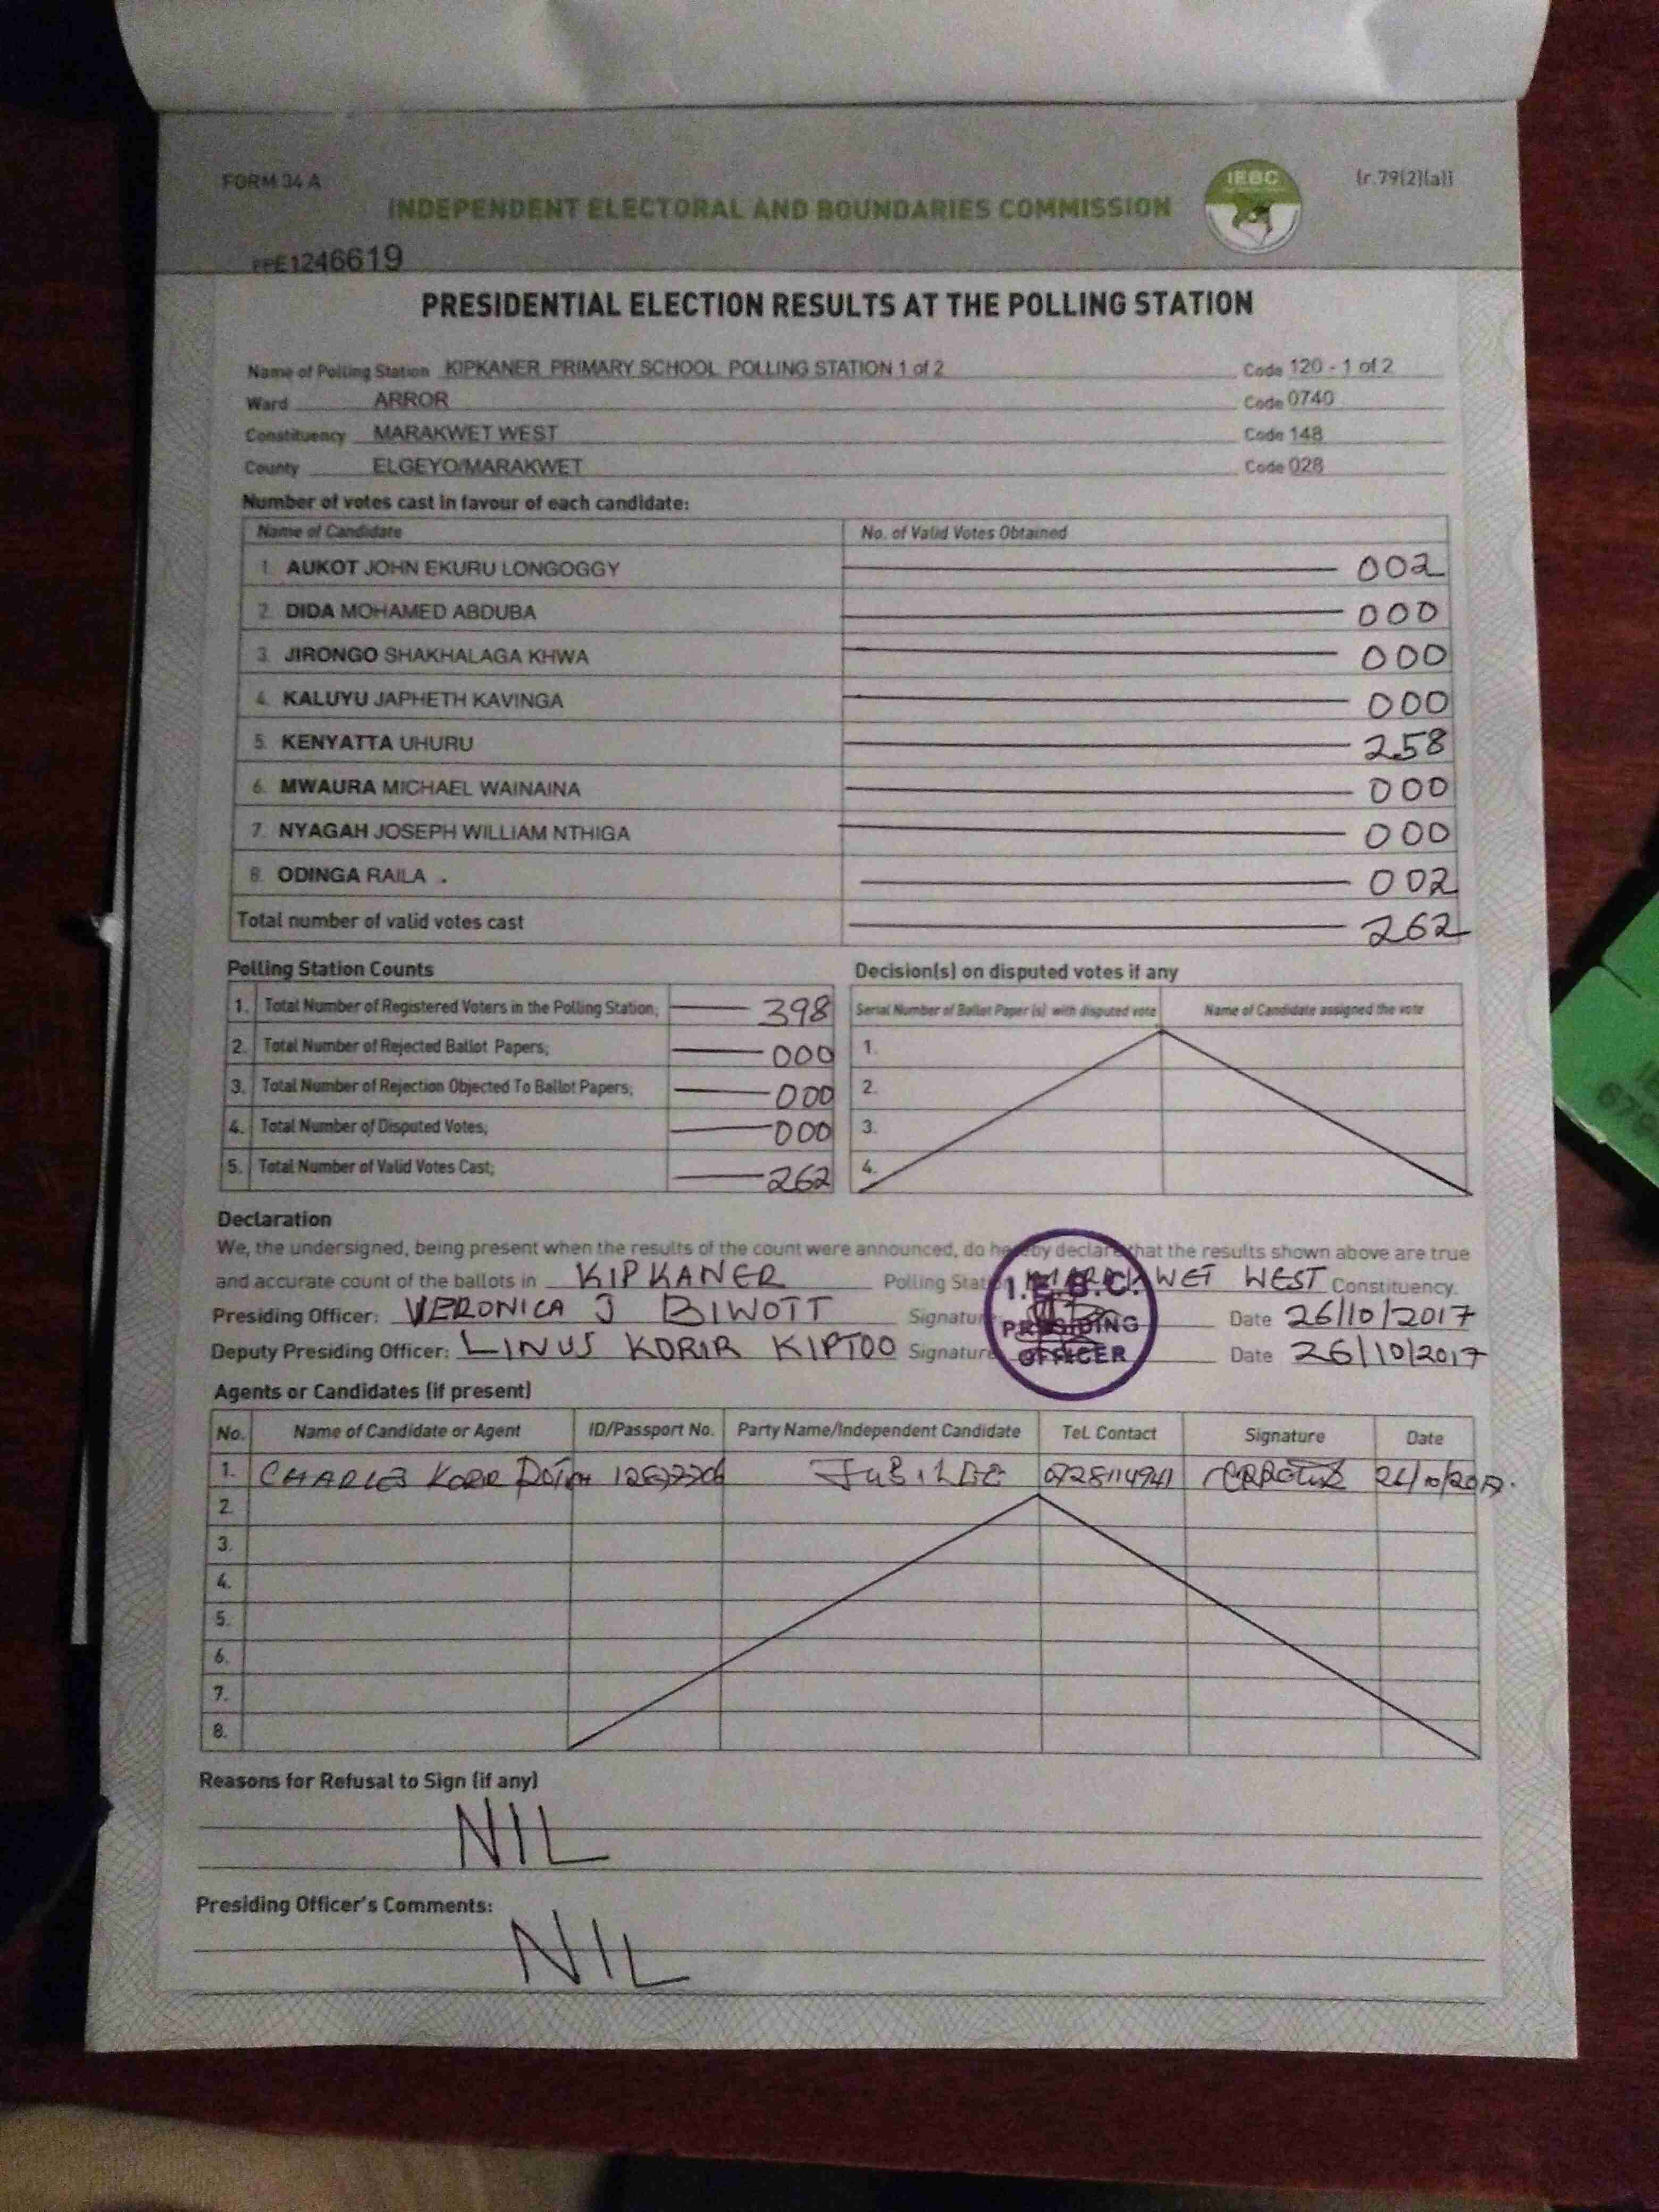 FORM 34 A
(r.79(2)(a))
INDEPENDENT ELECTORAL AND BOUNDARIES COMMISSION
IEBC
E1246619
PRESIDENTIAL ELECTION RESULTS AT THE POLLING STATION
Name of Polling Station KIPKANER PRIMARY SCHOOL POLLING STATION 1 of 2 Code 120 - 1 of 2
Ward ARROR Code 0740
Constituency MARAKWET WEST Code 148
County ELGEYO/MARAKWET Code 028
Number of votes cast in favour of each candidate:
Name of Candidate No. of Valid Votes Obtained
1. AUKOT JOHN EKURU LONGOGGY 002
2. DIDA MOHAMED ABDUBA 000
3. JIRONGO SHAKHALAGA KHWA 000
4. KALUYU JAPHETH KAVINGA 000
5. KENYATTA UHURU 258
6. MWAURA MICHAEL WAINAINA 000
7. NYAGAH JOSEPH WILLIAM NTHIGA 000
8. ODINGA RAILA 002
Total number of valid votes cast 262
Polling Station Counts
1. Total Number of Registered Voters in the Polling Station; 398
2. Total Number of Rejected Ballot Papers; 000
3. Total Number of Rejection Objected To Ballot Papers; 000
4. Total Number of Disputed Votes; 000
5. Total Number of Valid Votes Cast; 262
Decision(s) on disputed votes if any
Serial Number of Ballot Paper (s) with disputed vote Name of Candidate assigned the vote
1.
2.
3.
4.
Declaration
We, the undersigned, being present when the results of the count were announced, do hereby declare that the results shown above are true
and accurate count of the ballots in KIPKANER Polling Station MARAKWET WEST Constituency.
Presiding Officer: VERONICA J BIWOTT Signature: Date 26/10/2017
Deputy Presiding Officer: LINUS KORIR KIPTOO Signature Date 26/10/2017
I.E.B.C.
PRESIDING
OFFICER
Agents or Candidates (if present)
No. Name of Candidate or Agent ID/Passport No. Party Name/Independent Candidate Tel. Contact Signature Date
1. CHARLES KORIR JUBILEE 0728114941 26/10/2017.
2.
3.
4.
5.
6.
7.
8.
Reasons for Refusal to Sign (if any)
NIL
Presiding Officer's Comments:
NIL